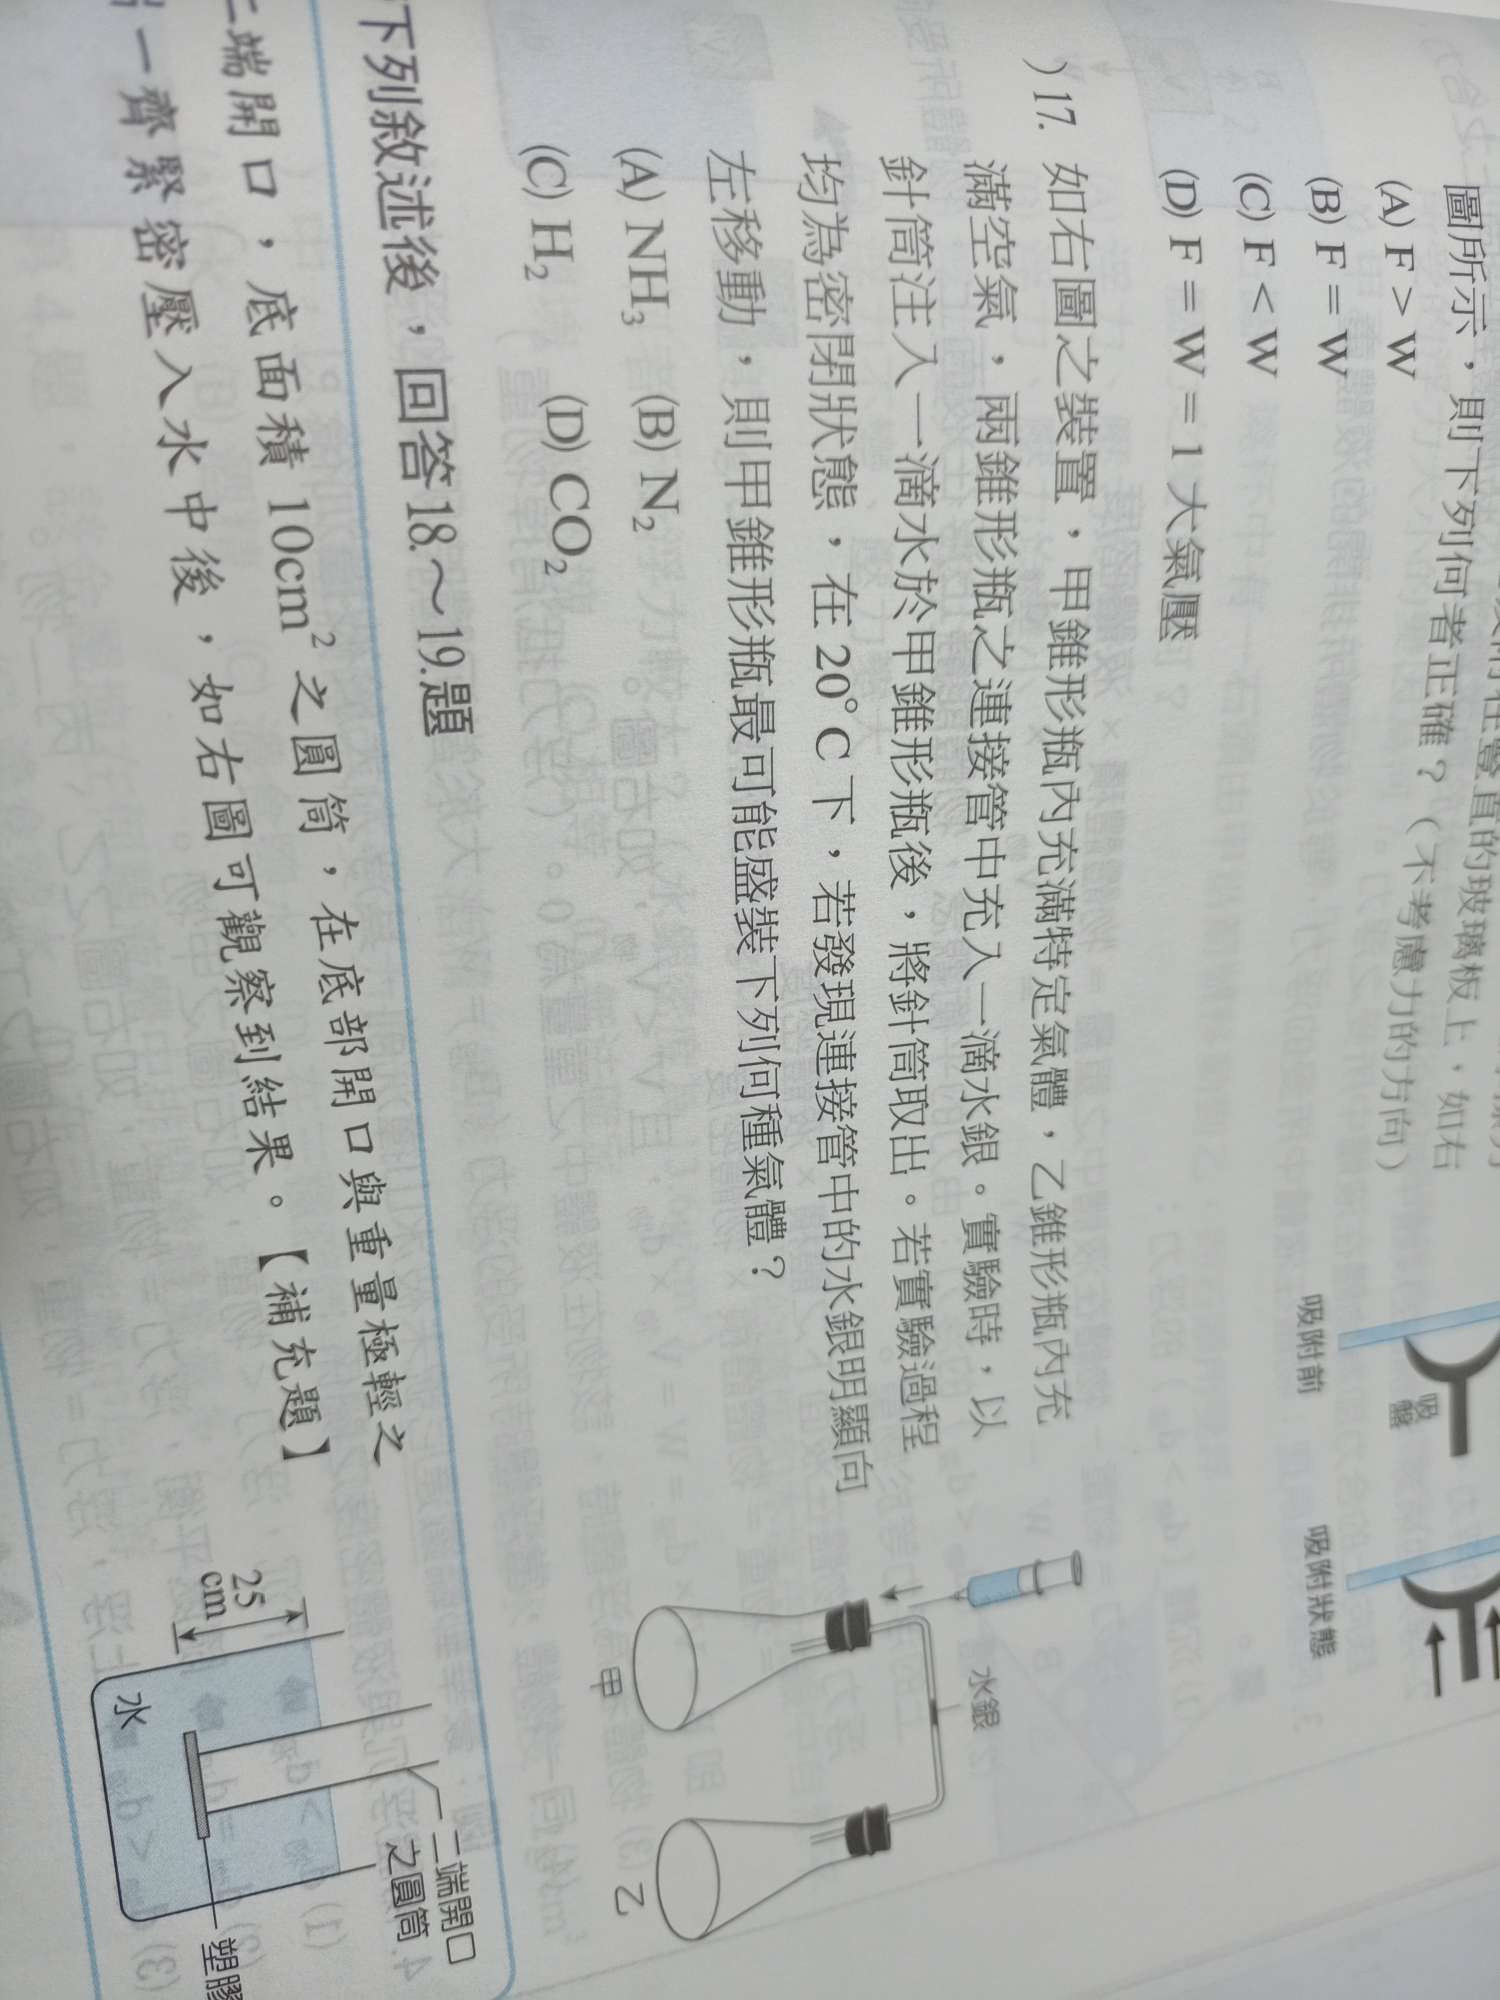 圖所示，則下列何者正確？（不考慮力的方向）
(A) F > W
(B) F = W
(C) F < W
(D) F = W = 1 大氣壓
吸附前
吸盤
吸附狀態
)17. 如右圖之裝置，甲錐形瓶內充滿特定氣體，乙錐形瓶內充
滿空氣，兩錐形瓶之連接管中充入一滴水銀。實驗時，以
針筒注入一滴水於甲錐形瓶後，將針筒取出。若實驗過程
均為密閉狀態，在 20°C 下，若發現連接管中的水銀明顯向
左移動，則甲錐形瓶最可能盛裝下列何種氣體？
(A) NH₃ (B) N₂
(C) H₂ (D) CO₂
水銀
甲
乙
下列敘述後，回答18.～19.題
二端開口，底面積 10cm² 之圓筒，在底部開口與重量極輕之
片一齊緊密壓入水中後，如右圖可觀察到結果。【補充題】
25
cm
水
二端開口
之圓筒
塑膠